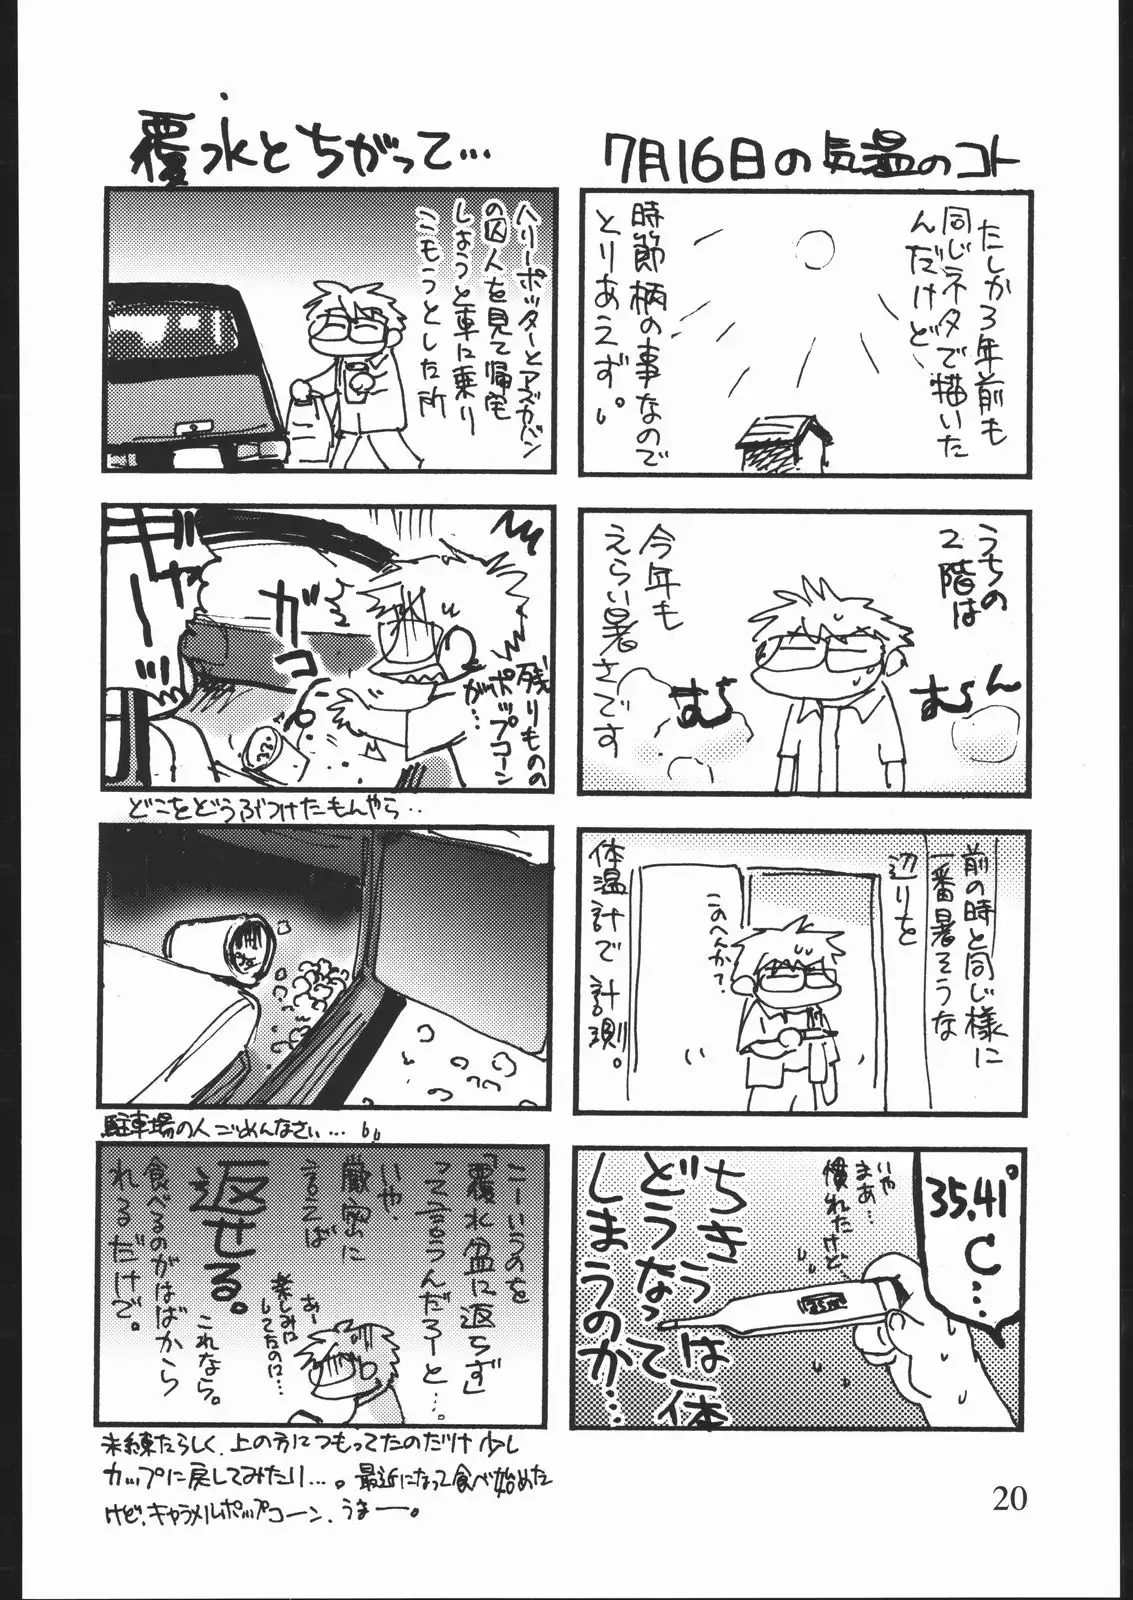 7月16日の気温のコト
たしか3年前も
同じネタで描いた
んだけど
時節柄の事なので
とりあえず。
うちの
2階は
む〜ん
むら
今年も
えらい暑さです
前の時と同じ様に
一番暑そうな
辺りを
このへんか?
体温計で計測。
35.41℃…
いや
まあ…
慣れたけど、
ちきう は一体
どうなって
しまうのか…
覆水とちがって…
ハリーポッターとアズカバン
の囚人を見て帰宅
しようと車に乗り
こもうとした所
残りものの
ポップコーン
が…
ガコ
どこをどうぶつけたもんやら‥
駐車場の人ごめんなさい…
こーいうのを
「覆水盆に返らず」
って言うんだろーと…。
いや、
厳密に
言えば
あー
楽しみに
してたのに…
返せる。
これなら。
食べるのがはばから
れるだけで。
未練たらしく、上の方につもってたのだけ少し
カップに戻してみたり…。最近になって食べ始めた
けど、キャラメルポップコーン、うまー。
20